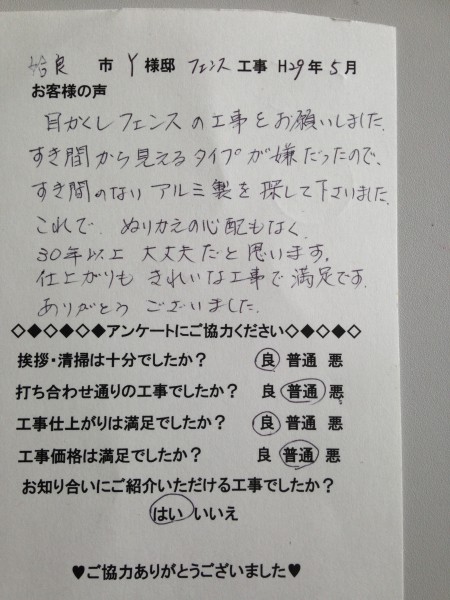 姶良 市 Y 様邸 フェンス 工事 H29年 5月
お客様の声
目かくしフェンスの工事をお願いしました。
すき間から見えるタイプが嫌だったので、
すき間のないアルミ製を探して下さいました。
これで、ぬりかえの心配もなく、
30年以上 大丈夫だと思います。
仕上がりも きれいな工事で満足です。
ありがとう ございました。
◇◆◇◆◇◆アンケートにご協力ください◇◆◇◆◇
挨拶・清掃は十分でしたか? 良 普通 悪
打ち合わせ通りの工事でしたか? 良 普通 悪
工事仕上がりは満足でしたか? 良 普通 悪
工事価格は満足でしたか? 良 普通 悪
お知り合いにご紹介いただける工事でしたか?
はい いいえ
♥ご協力ありがとうございました♥